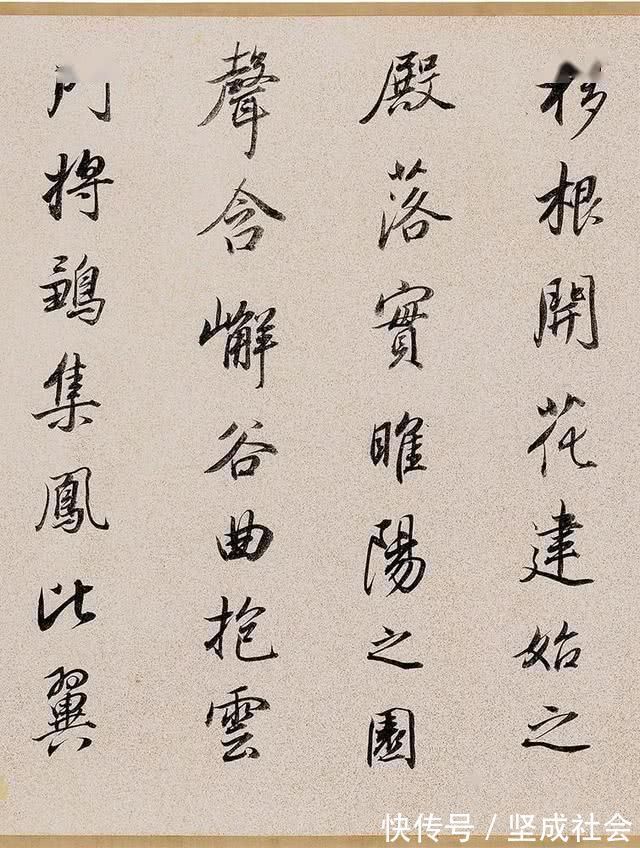 移根開花建始之
殿落實睢陽之園
聲含嶰谷曲抱雲
門將鶵集鳳比翼
快传号 / 坚成社会